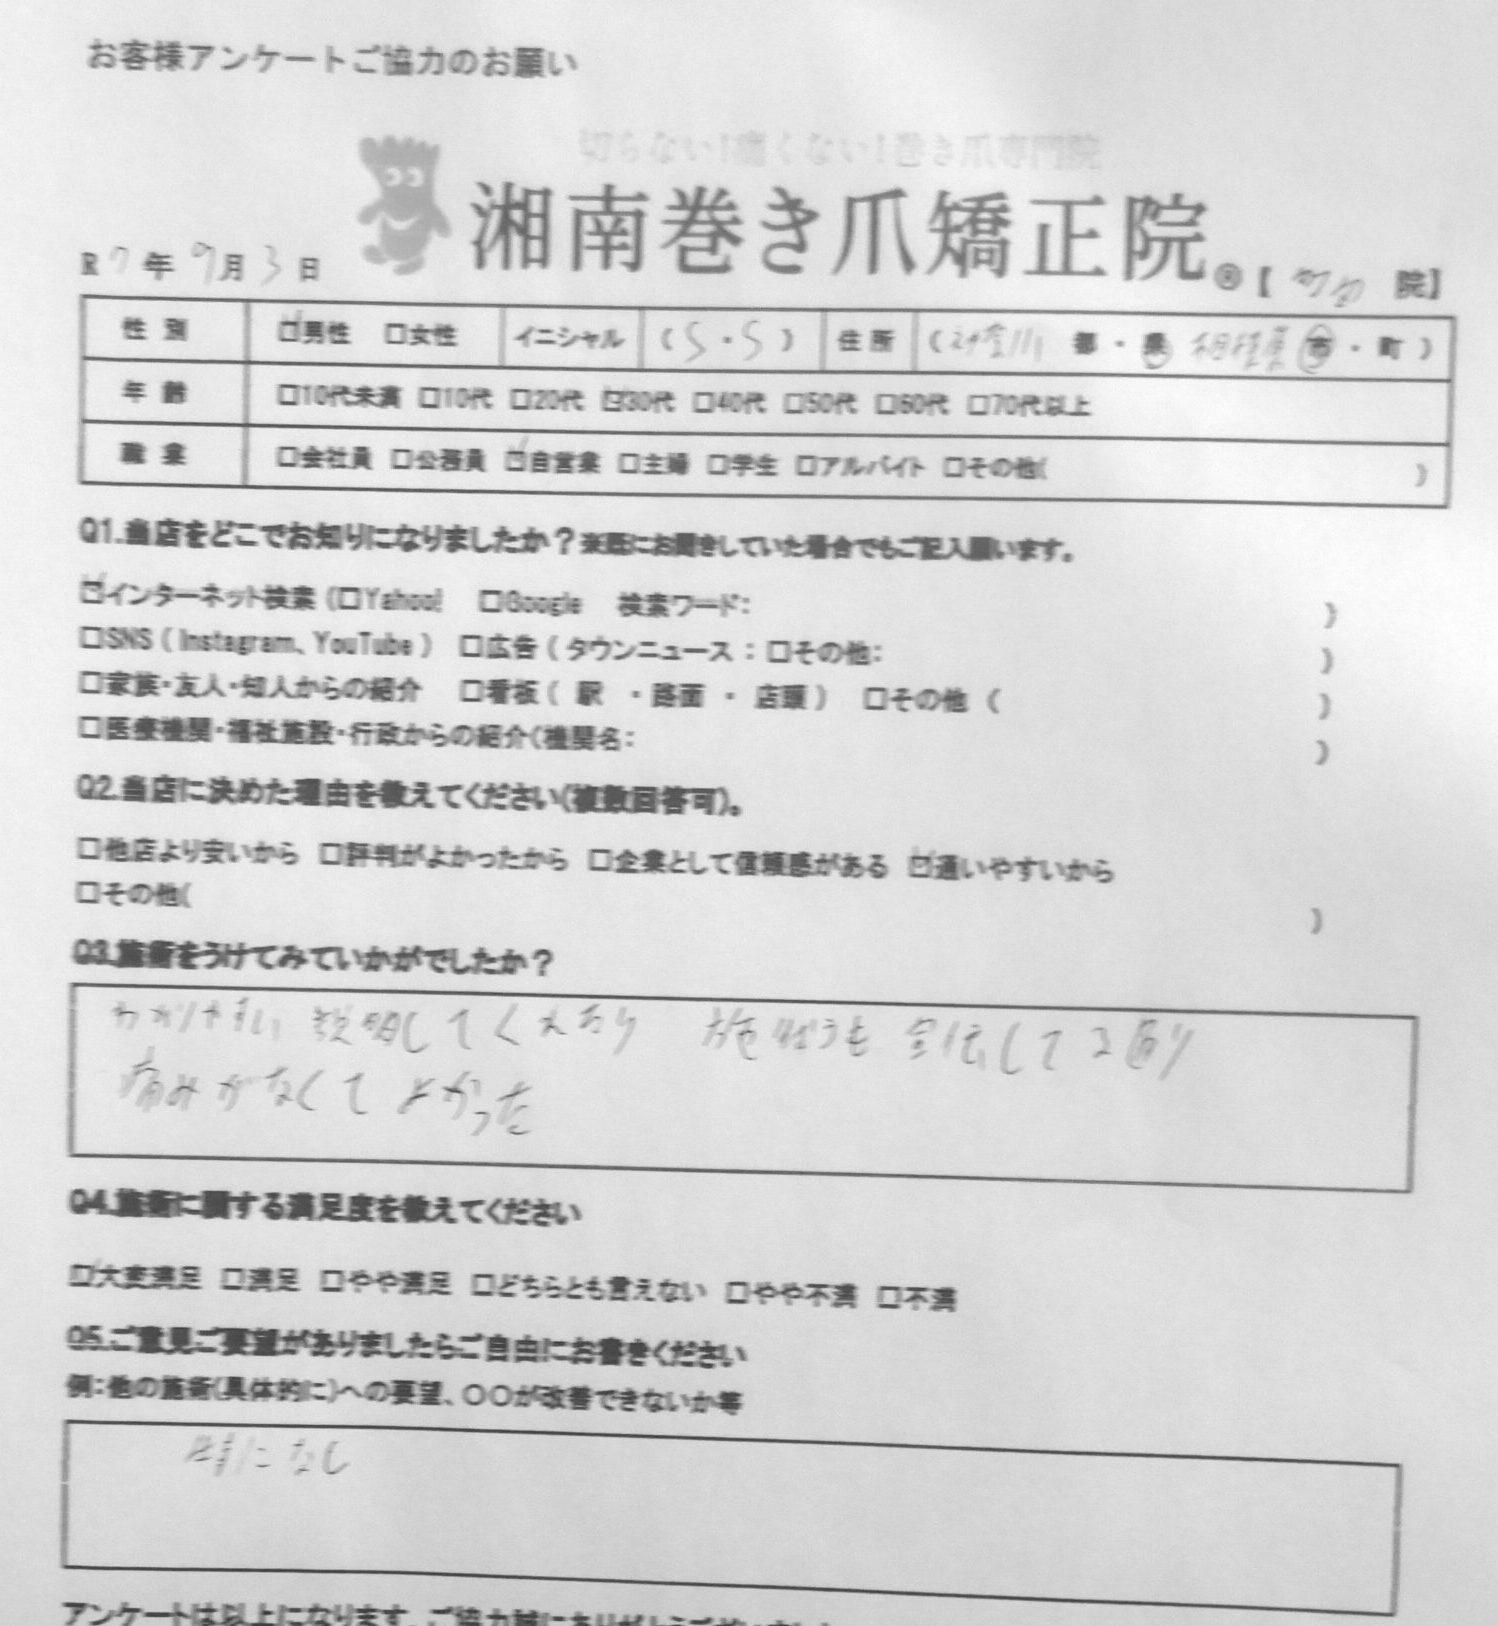 お客様アンケートご協力のお願い
切らない!痛くない!巻き爪専門院
湘南巻き爪矯正院® 【町田 院】
R7年9月3日
性別 ☑男性 □女性 イニシャル (S・S) 住所 (神奈川 都・県 相模原 市・町)
年齢 □10代未満 □10代 □20代 ☑30代 □40代 □50代 □60代 □70代以上
職業 □会社員 □公務員 ☑自営業 □主婦 □学生 □アルバイト □その他( )
Q1.当店をどこでお知りになりましたか?※既にお聞きしていた場合でもご記入願います。
☑インターネット検索(□Yahoo! □Google 検索ワード: )
□SNS(Instagram、YouTube) □広告(タウンニュース:□その他: )
□家族・友人・知人からの紹介 □看板( 駅 ・路面 ・ 店頭) □その他 ( )
□医療機関・福祉施設・行政からの紹介(機関名: )
Q2.当店に決めた理由を教えてください(複数回答可)。
□他店より安いから □評判がよかったから □企業として信頼感がある ☑通いやすいから
□その他( )
Q3.施術をうけてみていかがでしたか?
わかりやすい説明してくれたり 施術も宣伝してる通り
痛みがなくてよかった
Q4.施術に関する満足度を教えてください
☑大変満足 □満足 □やや満足 □どちらとも言えない □やや不満 □不満
Q5.ご意見ご要望がありましたらご自由にお書きください
例:他の施術(具体的に)への要望、〇〇が改善できないか等
特になし
アンケートは以上になります。ご協力誠にありがとうございました